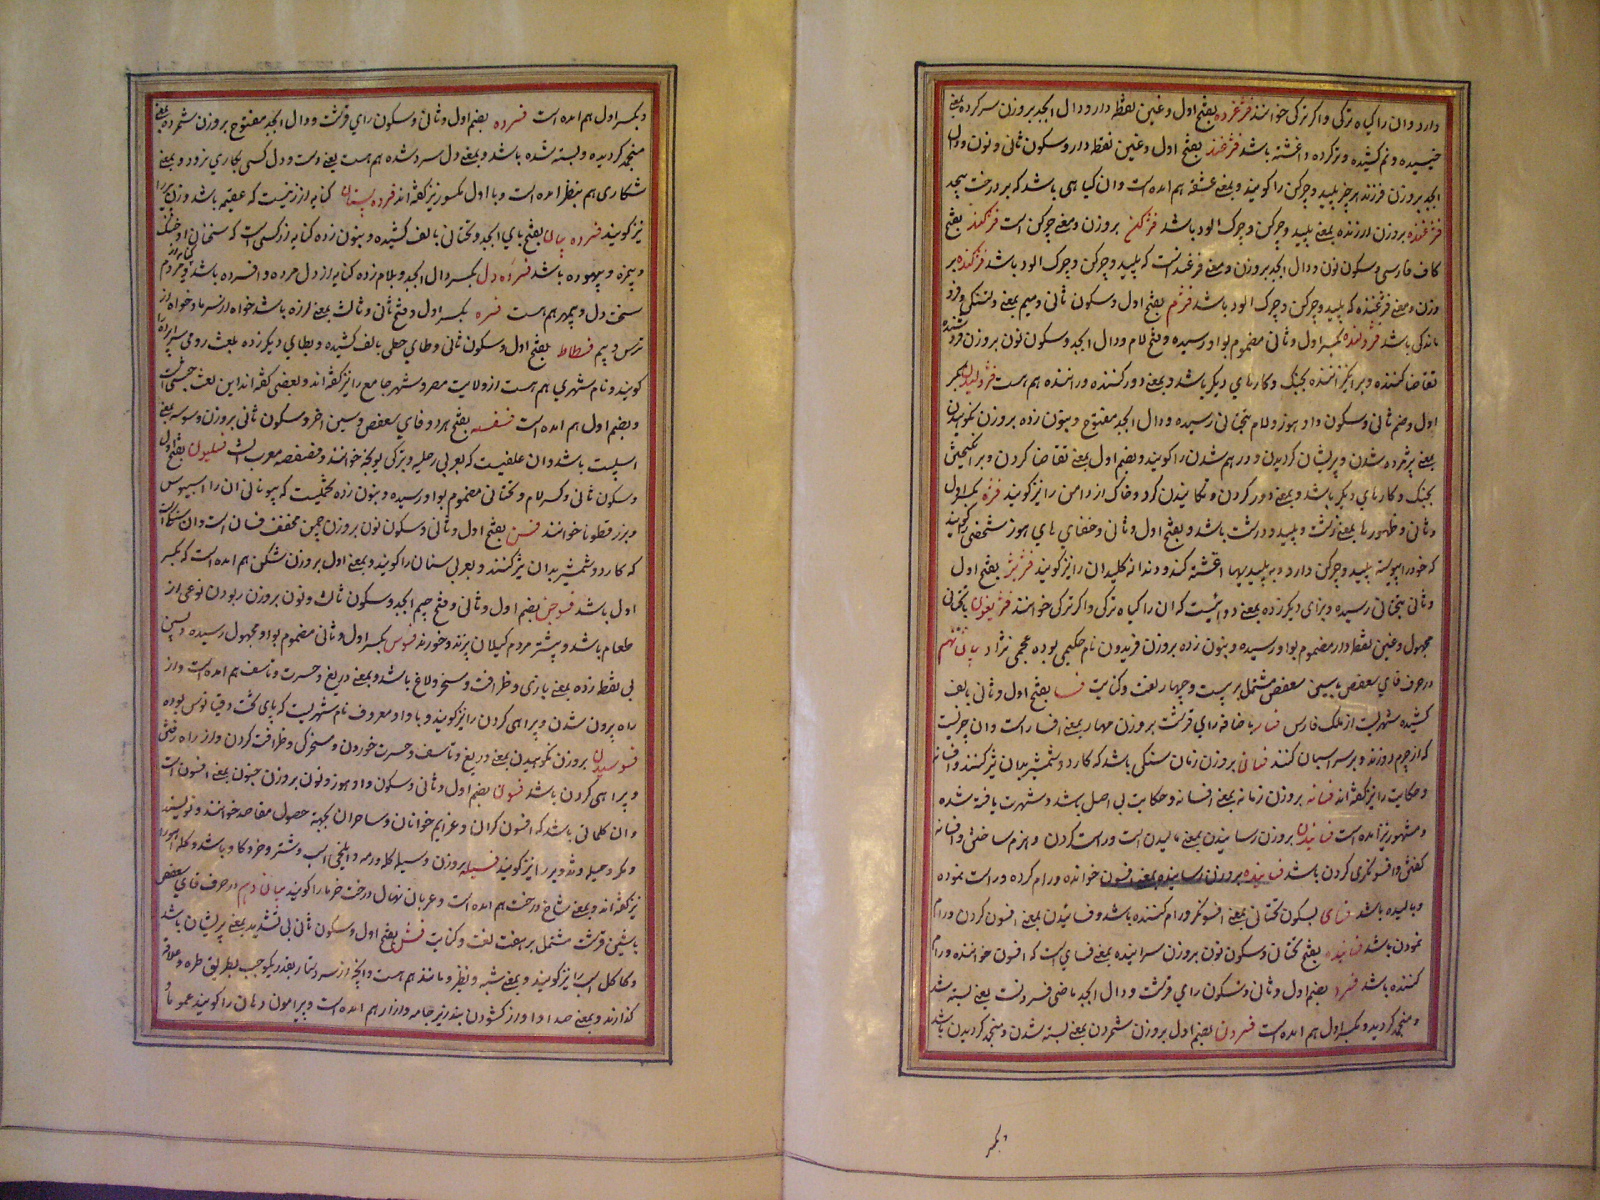 دارد و ان را کیاه ترکی و اکر ترکی خوانند فژغرده بفتح اول و غین نقطه دار و دال ابجد بر وزن سر کرده بمعنی
خیسیده و نم کشیده و تر کرده و اغشته باشد فژغند بفتح اول و غین نقطه دار و سکون ثانی و نون و دال
ابجد بر وزن فرزند هر چیز پلید و چرکن را کویند و بمعنی عشقه هم امده است و ان کیا هی باشد که بر درخت پیچد
فژغنده بر وزن ارزنده بمعنی پلید و چرکن و چرک الود باشد فژکن بر وزن و معنی چرکن است فژکند بفتح
کاف فارسی و سکون نون و دال ابجد بر وزن و معنی فرغند است که پلید و چرکن و چرک الود باشد فژکنده بر
وزن و معنی فژغنده که پلید و چرکن و چرک الود باشد فژم بفتح اول و سکون ثانی و میم بمعنی دلتنکی و فرو
ماندکی باشد فژولنده بکسر اول و ثانی مضموم بواو رسیده و فتح لام و دال ابجد و سکون نون بر وزن فروشنده
تقاضا کننده و بر انکیزاننده بجنک و کارهای دیکر باشد و بمعنی دور کننده و راننده هم هست فژولیدن بکسر
اول و ضم ثانی و سکون واو هوز و لام بتحتانی رسیده و دال ابجد مفتوح و بنون زده بر وزن نکوهیدن
بمعنی پژمرده شدن و پریشان کردیدن و در هم شدن را کویند و بضم اول بمعنی تقاضا کردن و بر انکیختن
بجنک و کارهای دیکر باشد و بمعنی دور کردن و تکانیدن کرد و خاک از دامن را نیز کویند فژه بکسر اول
و ثانی و ظهور ها بمعنی زشت و پلید و درشت باشد و بفتح اول و ثانی و خفای های هوز شخصی را کویند
که خود را پیوسته پلید و چرکن دارد و به پلیدیها اغشته کند و دندانه کلیدان را نیز کویند فژیژ بفتح اول
و ثانی بتحتانی رسیده و بزای دیکر زده بمعنی دوائیست که ان را کیاه ترکی و اکر ترکی خوانند فژیغون بتحتانی
مجهول و غین نقطه دار مضموم بواو رسیده و بنون زده بر وزن فریدون نام حکیمی بوده عجمی نژاد بیان نهم
در حرف فای سعفص با سین سعفص مشتمل بر بیست و چهار لغت و کنایت فسا بفتح اول و ثانی بالف
کشیده شهریست از ملک فارس فسار با خانه رای قرشت بر وزن مهار بمعنی افسار است و ان چرمیست
که از چرم دوزند و بر سر اسبان کنند فسان بر وزن زمان سنکی باشد که کارد و شمشیر بدان تیز کنند و افسانه
و حکایت را نیز کفته اند فسانه بر وزن زمانه بمعنی افسانه و حکایت بی اصل باشد و شهرت یافته شده
و مشهور نیز امده است فسانیدن بر وزن رسانیدن بمعنی مالیدن است و راست کردن و افسانه
کفتن و افسونکری کردن باشد فساینده بر وزن رساینده بمعنی افسون خوانده و رام کرده و راست نموده
و مالیده باشد فسای بسکون تحتانی بمعنی افسونکر و رام کننده باشد و فسائیدن بمعنی افسون کردن و رام
نمودن باشد فساینده بفتح تحتانی و سکون نون بر وزن سراینده بمعنی فسای است که افسون خواننده و رام
کننده باشد فسرد بضم اول و ثانی و سکون رای قرشت و دال ابجد ماضی فسردنست یعنی بسته شد
و منجمد کردید و بکسر اول هم امده است فسردن بضم اول بر وزن شمردن بمعنی بسته شدن و منجمد کردیدن باشد
و بکسر
و بکسر اول هم امده است فسرده بضم اول و ثانی و سکون رای قرشت و دال ابجد مفتوح بر وزن شمرده بمعنی
منجمد کردیده و بسته شده باشد و بمعنی دل سرد شده هم هست یعنی دست و دل کسی بکاری نرود و بمعنی
شکاری هم بنظر امده است و با اول مکسور نیز کفته اند فسرده پستان کنایه از زنیست که عقیمه باشد و زن پیر را
نیز کویند فسرده بیان بفتح بای ابجد و تحتانی بالف کشیده و بنون زده کنایه از کسی است که سخنان او خنک
و بیمزه و بیهوده باشد فسرده دل بکسر دال ابجد و بلام زده کنایه از دل مرده و افسرده باشد و مردم
سخت دل و بیمهر هم هست فسره بکسر اول و فتح ثانی و ثالث بمعنی لرزه باشد خواه از سرما و خواه از
ترس و بیم فسطاط بفتح اول و سکون ثانی و طای حطی بالف کشیده و بطای دیکر زده بلغت رومی سراپرده را
کویند و نام شهری هم هست از ولایت مصر و شهر جامع را نیز کفته اند و بعضی کفته اند این لغت حبشی است
و بضم اول هم امده است فسفسه بفتح هر دو فای سعفص و سین اخر و سکون ثانی بر وزن وسوسه بمعنی
اسپست باشد و ان علفیست که بعربی رطبه و بترکی یونجه خوانند و فصفصه معرب انست فسلیون بفتح اول
و سکون ثانی و کسر لام و تحتانی مضموم بواو رسیده و بنون زده تخمیست که بیونانی ان را اسبیوس
و بزر قطونا خوانند فسن بفتح اول و ثانی و سکون نون بر وزن چمن مخفف فسان است و ان سنکی است
که کارد و شمشیر بدان تیز کنند و بعربی سنان را کویند و بمعنی اول بر وزن شکن هم امده است که بکسر
اول باشد فسوجن بضم اول و ثانی و فتح جیم ابجد و سکون ثالث و نون بر وزن ربودن نوعی از
طعام باشد و بیشتر مردم کیلان پزند و خورند فسوس بکسر اول و ثانی مضموم بواو مجهول رسیده و سین
بی نقطه زده بمعنی بازی و ظرافت و مسخر و لاغ باشد و بمعنی دریغ و حسرت و تاسف هم امده است و از
راه برون شدن و بیراهی کردن را نیز کویند و با واو معروف نام شهریست که پای تخت دقیانوس بوده
فسوسیدن بر وزن نکوهیدن بمعنی دریغ و تاسف و حسرت خوردن و مسخرکی و ظرافت کردن و از راه رفتن
و بیراهی کردن باشد فسون بضم اول و ثانی و سکون واو هوز و نون بر وزن جنون بمعنی افسون است
و ان کلماتی باشد که افسون کران و عزایم خوانان و ساحران بجهة حصول مقاصد خوانند و نویسند
و مکر و حیله و تدبیر را نیز کویند فسیله بر وزن وسیله کله و رمه و ایلخی اسب و شتر و خر و کاو باشد و کله اهو را
نیز کفته اند و بمعنی شاخ درخت هم امده است و عربان نهال درخت خرما را کویند بیان دهم در حرف فای سعفص
باشین قرشت مشتمل بر هفت لغت و کنایت فش بفتح اول و سکون ثانی بی تشدید بمعنی پریشان باشد
و کاکل اسب را نیز کویند و بمعنی شبه و نظیر و مانند هم هست و انچه از سر دستار بقدر یکوجب بطریق طره و علاقه
کذارند و بمعنی صدا و اواز کشودن بند زیر جامه و ازار هم امده است و پیرامون دهان را کویند عموما و